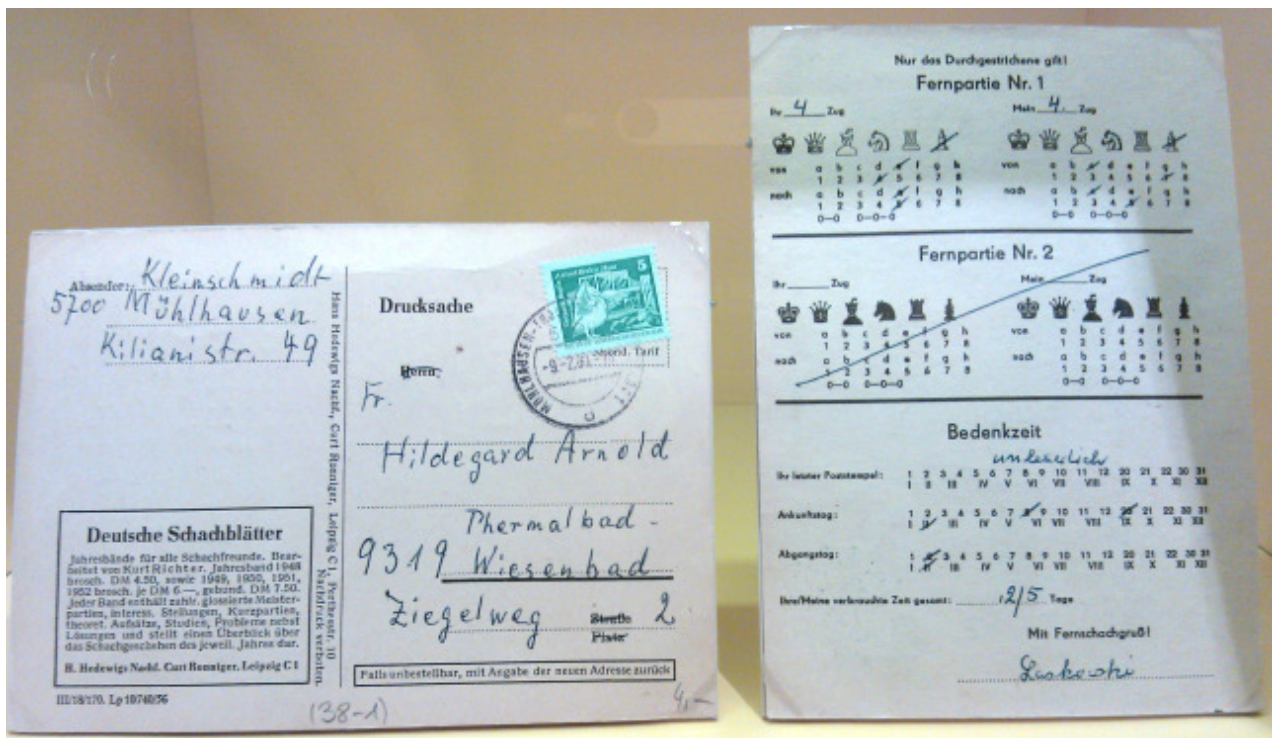 Absender: Kleinschmidt
5700 Mühlhausen
Kilianistr. 49
Deutsche Schachblätter
Jahresbände für alle Schachfreunde. Bear-
beitet von Kurt Richter. Jahresband 1948
brosch. DM 4.50, sowie 1949, 1950, 1951,
1952 brosch. je DM 6.—, gebund. DM 7.50.
Jeder Band enthält zahlr. glossierte Meister-
partien, interess. Stellungen, Kurzpartien,
theoret. Aufsätze, Studien, Probleme nebst
Lösungen und stellt einen Überblick über
das Schachgeschehen des jeweil. Jahres dar.
H. Hedewigs Nachf. Curt Ronniger, Leipzig C 1
III/18/170. Lp 10740/56
(38-1)
Hans Hedewigs Nachf., Curt Ronniger, Leipzig C 1, Perthesstr. 10
Nachdruck verboten.
Drucksache
5
Tarif
MÜHLHAUSEN
Herrn
Fr.
Hildegard Arnold
Thermalbad-
9319 Wiesenbad
Ziegelweg Straße 2
Platz
Falls unbestellbar, mit Angabe der neuen Adresse zurück
4,-
Nur das Durchgestrichene gilt!
Fernpartie Nr. 1
Ihr 4 Zug Mein 4. Zug
von a b c d e f g h von a b c d e f g h
1 2 3 4 5 6 7 8 1 2 3 4 5 6 7 8
nach a b c d e f g h nach a b c d e f g h
1 2 3 4 5 6 7 8 1 2 3 4 5 6 7 8
0—0 0—0—0 0—0 0—0—0
Fernpartie Nr. 2
Ihr Zug Mein Zug
von a b c d e f g h von a b c d e f g h
1 2 3 4 5 6 7 8 1 2 3 4 5 6 7 8
nach a b c d e f g h nach a b c d e f g h
1 2 3 4 5 6 7 8 1 2 3 4 5 6 7 8
0—0 0—0—0 0—0 0—0—0
Bedenkzeit
unleserlich
Ihr letzter Poststempel: 1 2 3 4 5 6 7 8 9 10 11 12 20 21 22 30 31
I II III IV V VI VII VIII IX X XI XII
Ankunftstag: 1 2 3 4 5 6 7 8 9 10 11 12 20 21 22 30 31
I II III IV V VI VII VIII IX X XI XII
Abgangstag: 1 2 3 4 5 6 7 8 9 10 11 12 20 21 22 30 31
I II III IV V VI VII VIII IX X XI XII
Ihre/Meine verbrauchte Zeit gesamt: 2/5 Tage
Mit Fernschachgruß!
Laskowski